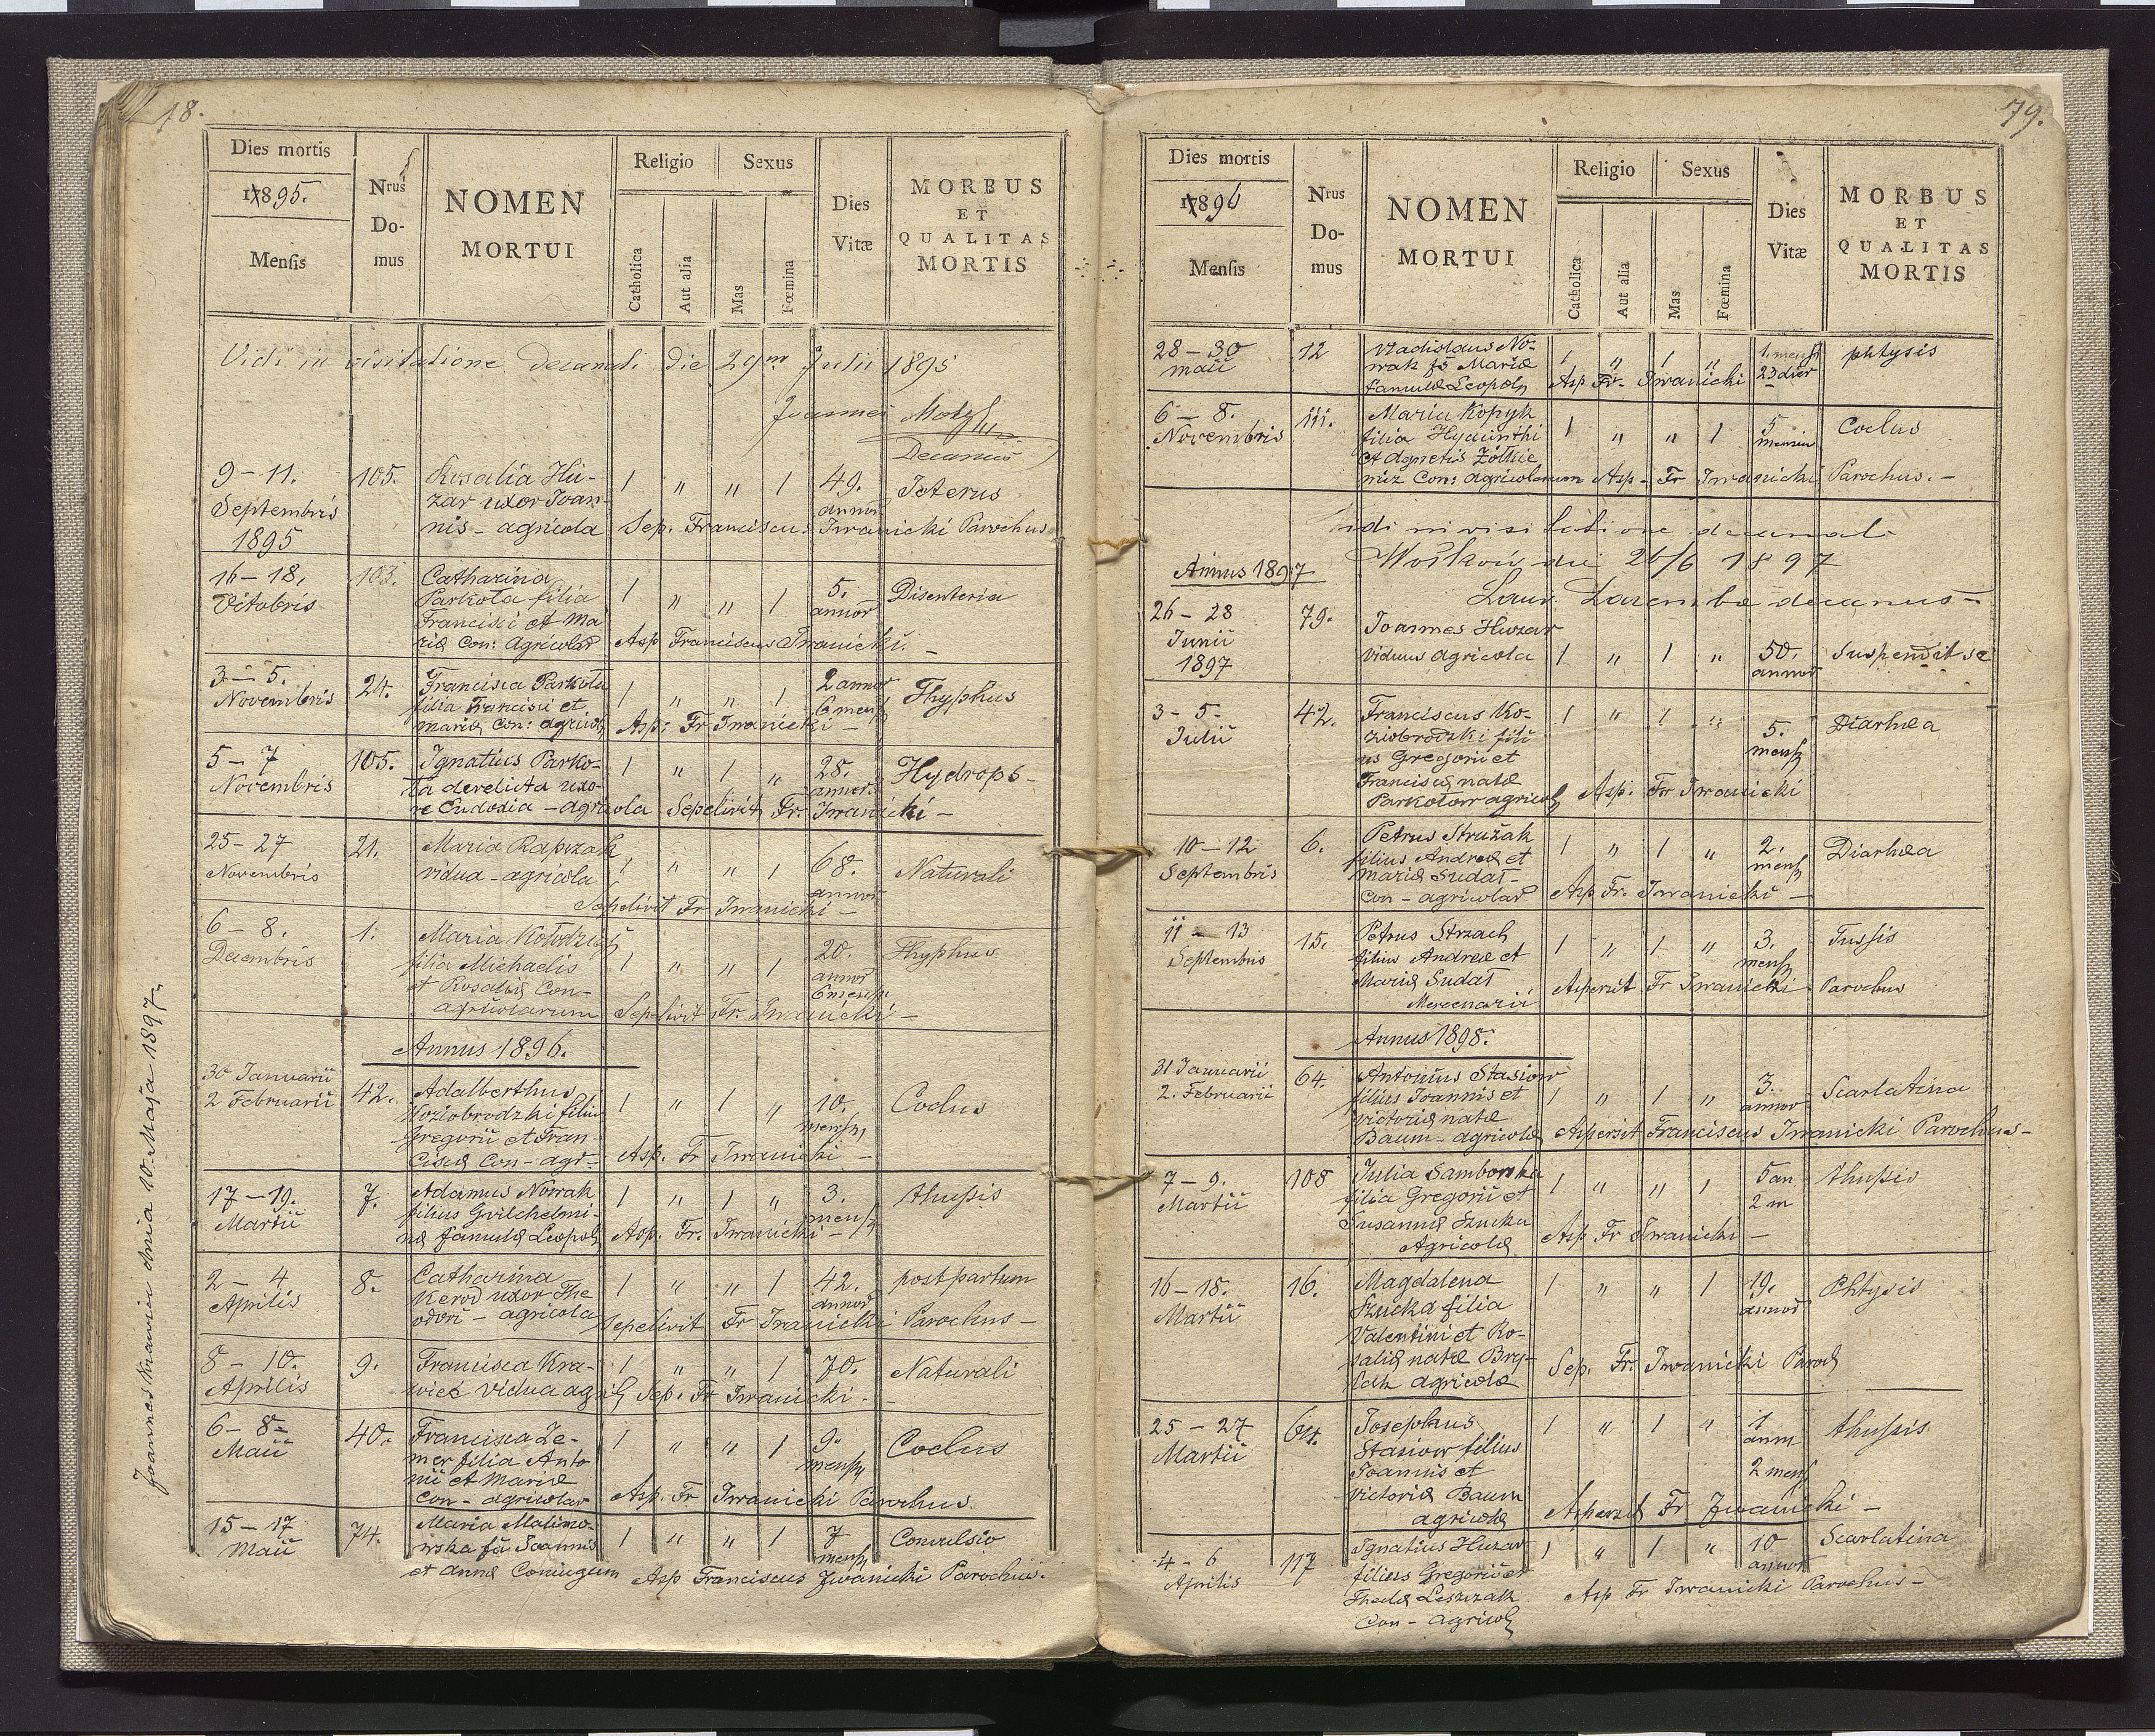 18.
Dies mortis
1895.
Mensis
Nrus
Do-
mus
NOMEN
MORTUI
Religio
Catholica
Aut alia
Sexus
Mas
Fœmina
Dies
Vitæ
MORBUS
ET
QUALITAS
MORTIS
Vidi in visitatione decanali die 29m Julii 1895
Joannes
Decanus
9 – 11.
Septembris
1895
105.
Rosalia Hu-
zar uxor Joan-
nis – agricola
1 " " 1
49.
annor
Icterus
Sep. Franciscus Iwanicki Parochus
16 – 18.
Octobris
103.
Catharina
Parkota filia
Francisci et Ma
riæ Con: Agricolar
1 " " 1
5.
annor
Disenteria
Asp Franciscus Iwanicki. –
3 – 5.
Novembris
24.
Francisca Parkota
filia Francisci et
mariæ Con: agricol
1 " " 1
2 annor
6 mens
Thyphus
Asp: Fr Iwanicki –
5 – 7
Novembris
105.
Ignatius Parko-
ta derelicta uxo-
re Eudoxia – agricola
1 " 1 "
28.
annor.
Hydrops –
Sepelivit Fr. Iwanicki –
25 – 27
Novembris
21.
Maria Rapszak
vidua – agricola
1 " " 1
68.
annor
Naturali
Sepelivit Fr Iwanicki –
6 – 8.
Decembris
1.
Maria
filia Michaelis
et Rosaliæ Con-
agricolarum
1 " " 1
20.
annor
6 mens.
Thyphus
Sepelivit Fr. Iwanicki –
Annus 1896.
30 Januarii
2 Februarii
42.
Adalberthus
Koziobrodzki filiu
Gregorii et Fran-
ciscæ Con – agr –
1 " 1 "
10.
mens,
Coclus
Asp. Fr Iwanicki –
17 – 19.
Martii
7.
Adamus Nowak
filius Gvilchelmi-
næ famulæ Leopol
1 " 1 "
3.
mens
thussis
Asp. Fr. Iwanicki –
2 – 4
Aprilis
8.
Catharina
Kerod uxor The
odori – agricola
1 " " 1
42.
annor
post partum
Sepelivit Fr Iwanicki Parochus –
8 – 10.
Aprilis
9.
Francisca Kra-
wiec vidua agril
1 " " 1
70.
Naturali
Sep. Fr Iwanicki. –
6 – 8 –
Maii
40.
Francisca Ze-
mer filia Anto
nii et Mariæ
Con – agricolar
1 " " 1
9.
mens
Coclus
Asp. Fr Iwanicki Parochus.
15 – 17
Maii
74.
Maria Malino-
wska fii Joannis
et Annæ Coniugum
1 " " 1
7
mens
Convulsio
Asp Franciscus Iwanicki Parochus.
Joannes Krawiec dnia 10. Maja 1897.
79.
Dies mortis
1896
Mensis
Nrus
Do-
mus
NOMEN
MORTUI
Religio
Catholica
Aut alia
Sexus
Mas
Fœmina
Dies
Vitæ
MORBUS
ET
QUALITAS
MORTIS
28 – 30
maii
12
Vladislaus No-
wak fs Mariæ
famulæ Leopoln
1 " 1 "
1. mens
23 dier
phtysis
Asp Fr. Iwanicki
6 – 8.
Novembris
111.
Maria Kopyk
filia Hyacinthi
et Agnetis Żółkie
micz Con: agricolarum
1 " " 1
5
mensiu
Coclus
Asp – Fr Iwanicki Parochus. –
Vidi in visitatione decanali
Wołków die 26/6 1897
Laur. Zaremba decanus –
Annus 1897
26 – 28
Junii
1897
79.
Joannes Huzar
viduus agricola
1 " 1 "
50.
annor
Suspendit se
3 – 5 –
Julii
42.
Franciscus Ko-
ziobrodzki fili
us Gregorii et
Franciscæ natæ
Parkotow agricol
1 " 1 "
5.
mens
Diarhea
Asp. Fr Iwanicki
10 – 12
Septembris
6.
Petrus Strużak
filius Andreæ et
mariæ Sudat –
Con – agricolar
1 " 1 "
2.
mens
Diarhea
Asp Fr. Iwanicki –
11 – 13
Septembris
15.
Petrus Strzach
filius Andreæ et
Mariæ Sudat
Mercenarii
1 " 1 "
3.
mens
Tussis
Aspersit Fr Iwanicki Parochus
Annus 1898.
31 Januarii
2. Februarii
64.
Antonius Stasiow
filius Joannis et
Victoriæ natæ
Baum – agricolæ
1 " 1 "
3.
annor
Scarlatina
Aspersit Franciscus Iwanicki Parochus –
7 – 9.
Martii
108
Julia Samborska
filia Gregorii et
Susannæ Szucka
Agricolæ
1 " " 1
5 an
2 m
thussis
Asp Fr Iwanicki –
16 – 18.
Martii
16.
Magdalena
Szucka filia
Valentini et Ro-
saliæ natæ Bry-
lak agricolæ
1 " " 1
19.
annor
Phtysis
Sep. Fr. Iwanicki Paroch
25 – 27
Martii
64.
Josephus
Stasiow filius
Joannis et
Victoriæ Baum
agricolæ
1 " 1 "
1
annn
2 mens
thussis
Aspersit Fr Iwanicki –
4 – 6
Aprilis
117
Ignatius Huzar
filius Gregorii et
Theclæ Leszczak
Con – agricol
1 " 1 "
10
annor
Scarlatina
Asp Fr Iwanicki Parochus –